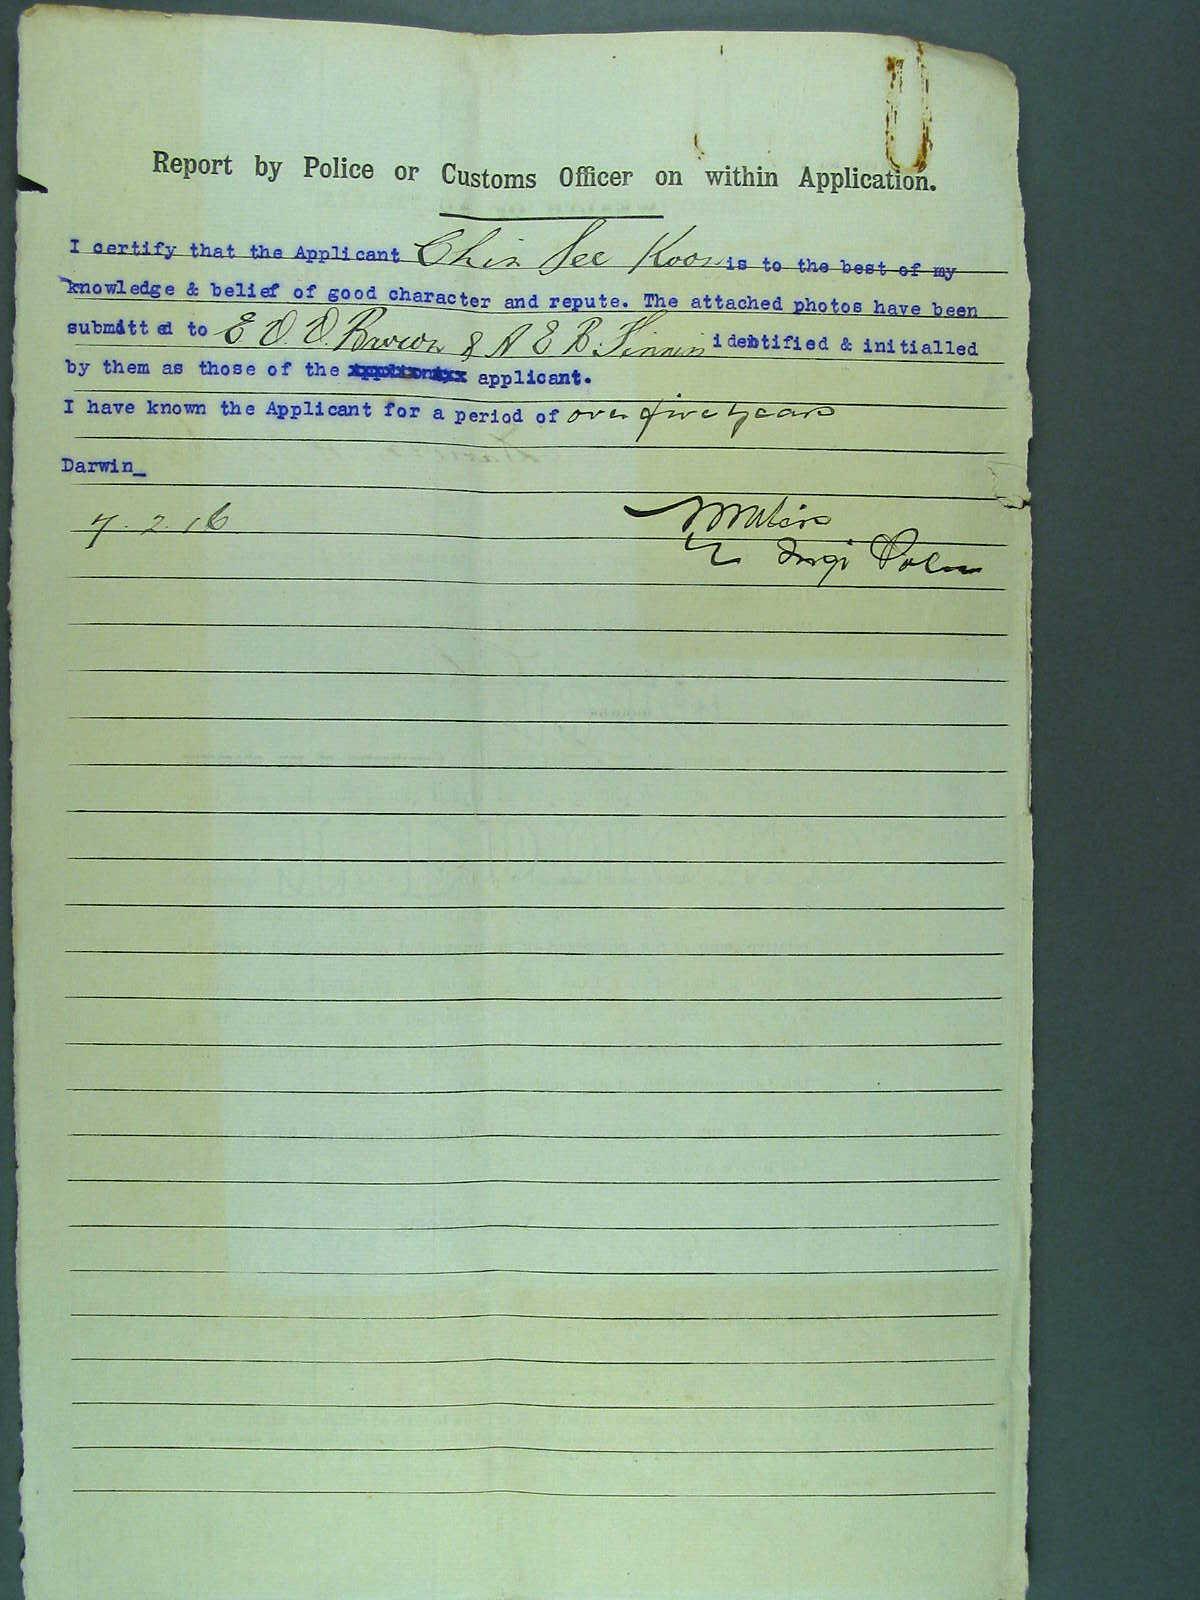 Report by Police or Customs Officer on within Application.
I certify that the Applicant Chin See Koon is to the best of my
knowledge & belief of good character and repute. The attached photos have been
submdtt ed to E O. O. Brown & A E B. identified & initialled
by them as those of the applicant.
I have known the Applicant for a period of over five years
Darwin_
7. 2. 16